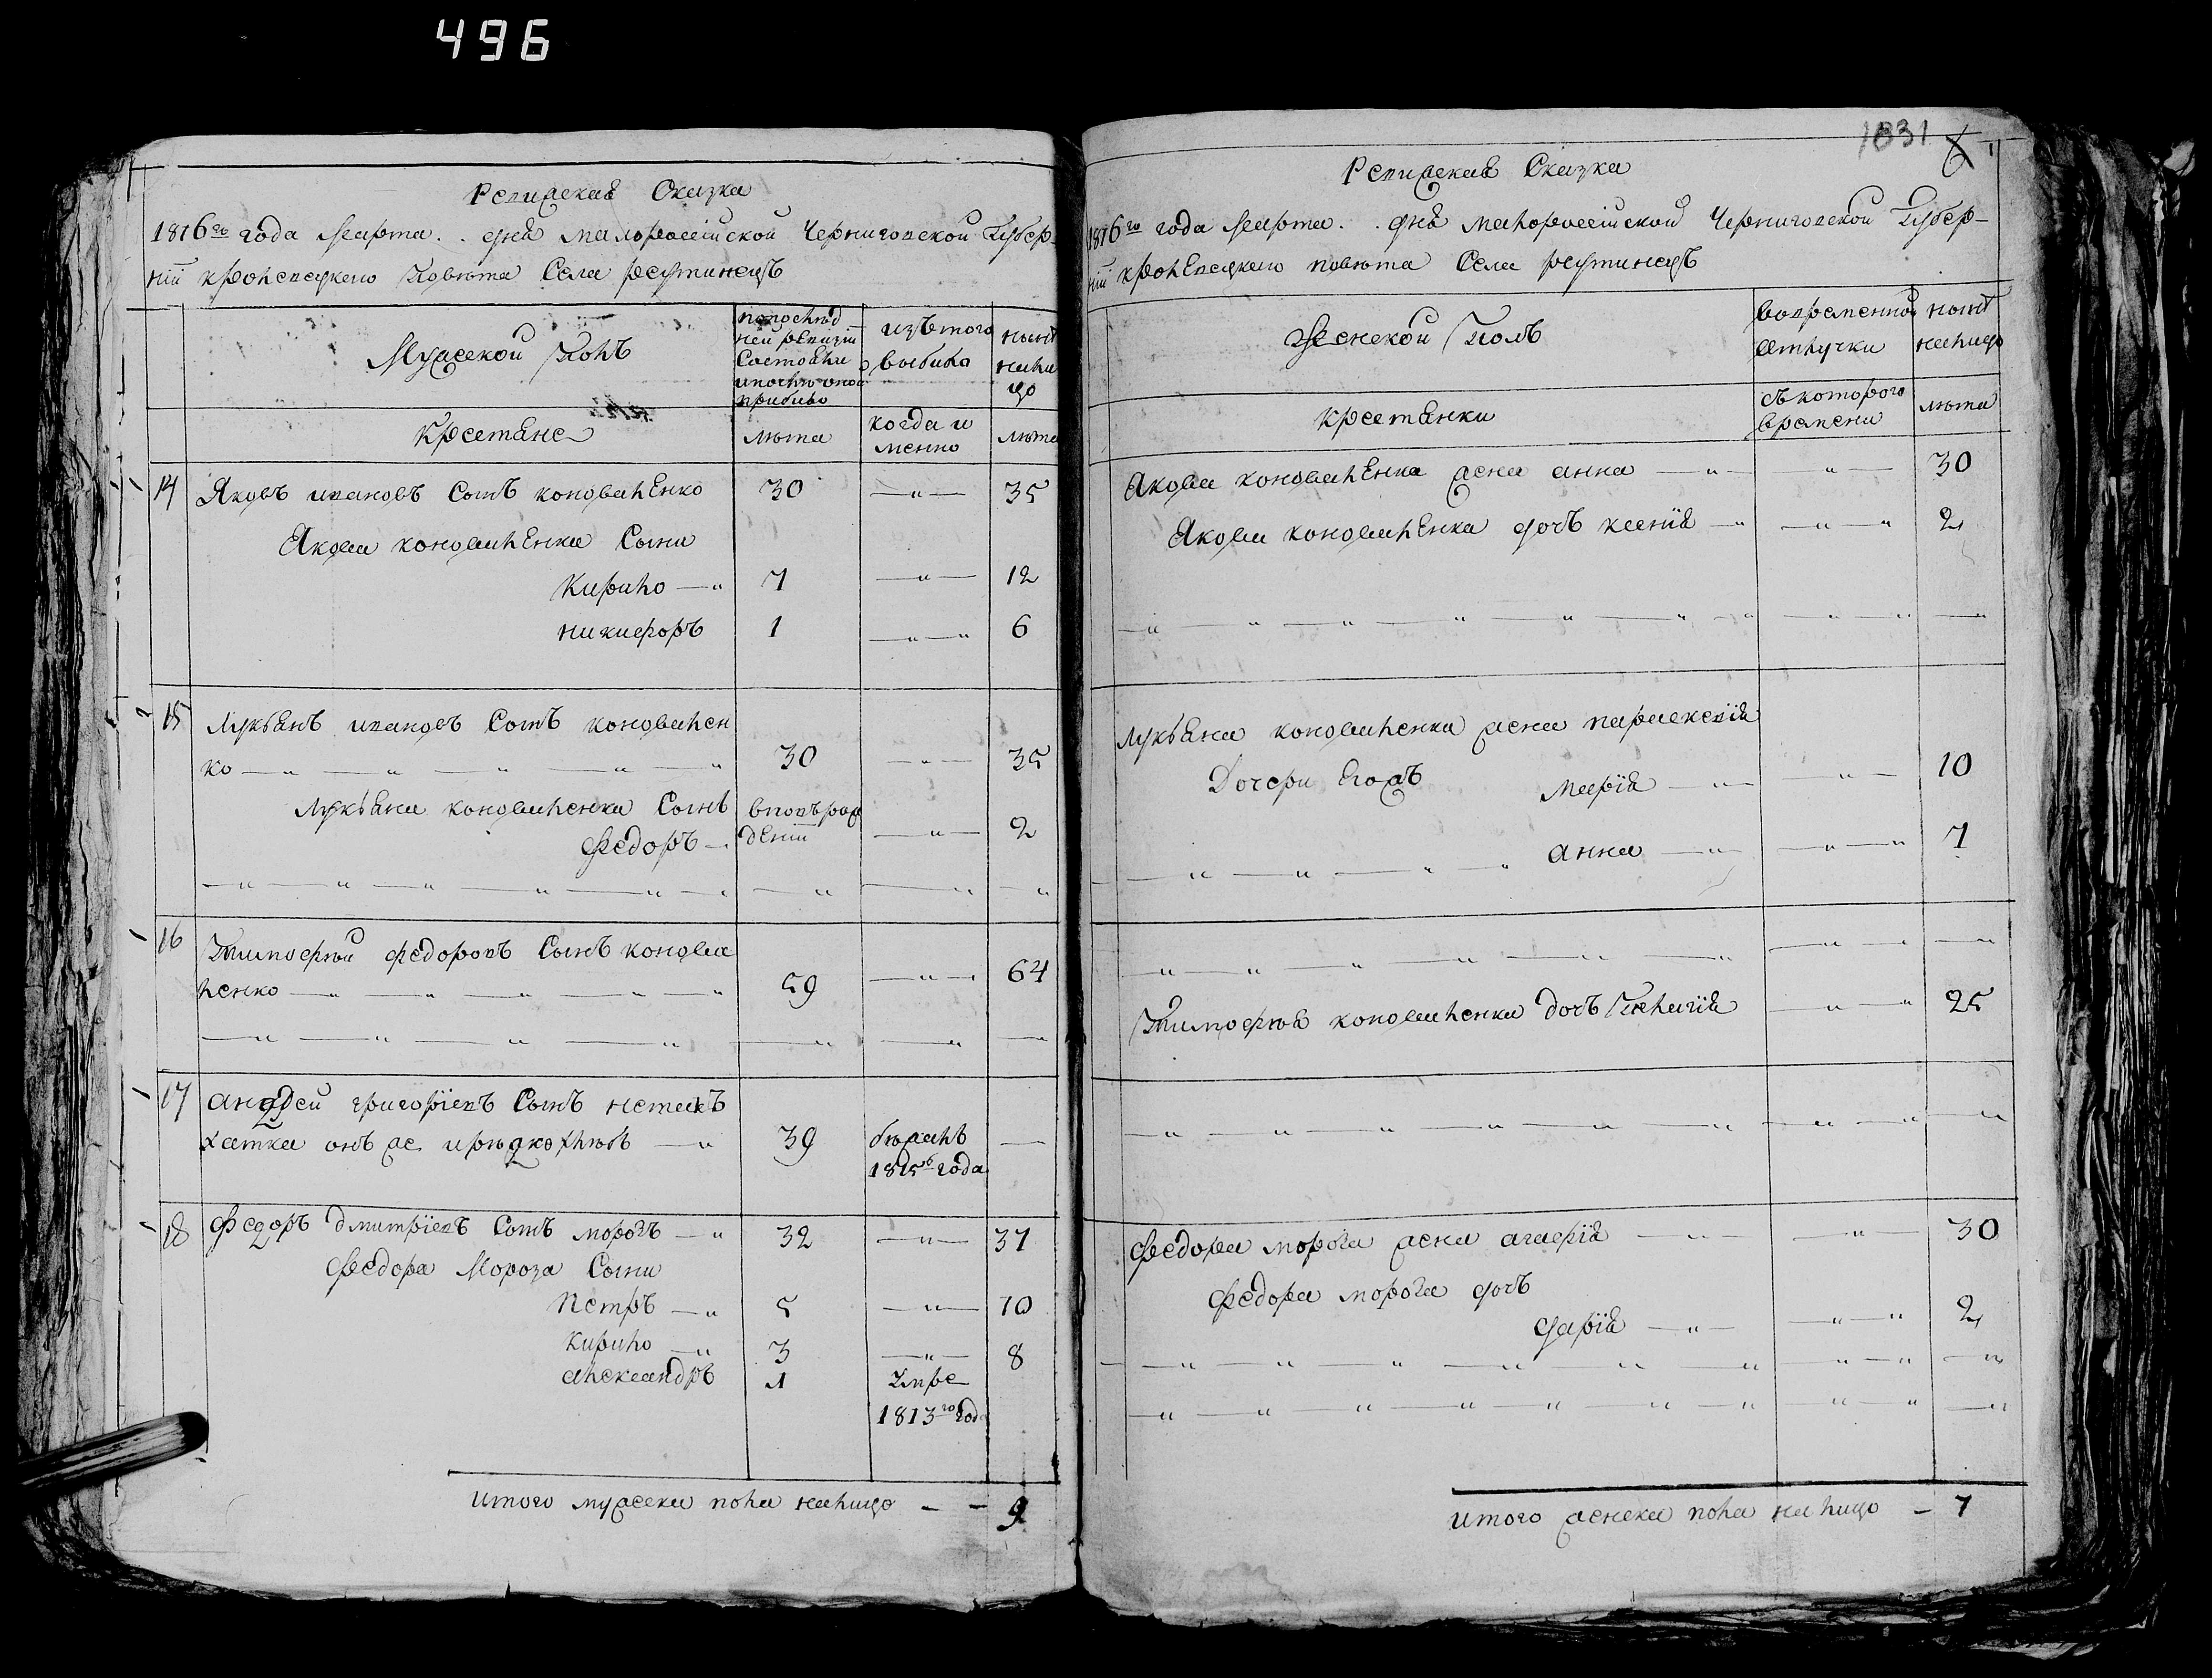 496
Ревижская Сказка
1816го года Марта . . дня малоросейской Черниговской Губер-
нїи кролевецкого Повѣта Села ретинецъ
Мужеской Полъ
попослѣд
ней ревизїи
Состояли
ипослѣ оной
прибыло
изътого
выбыло
нынѣ
нали
цо
Крестяне
лѣта
когда и
менно
лѣта
14 Яковъ ивановъ Сынъ коноваленко 30 —„— 35
Якова коноваленка Сыни
Кирило —„ 7 —„— 12
никифоръ 1 —„—„ 6
15 Лукьянъ ивановъ Сынъ коновален
ко —„ —„ —„ —„ —„ 30 —„— 35
Лукьяна коноваленка Сынъ вновърож
Федоръ —. денїи —„— 2
16 Тимофѣй федоровъ Сынъ конова
ленко —„ —„ —„ —„ —„ 59 —„— 64
17 андрей григорїевъ Сынъ
хатка онъ же 39 бѣжалъ —
1815го года
18 Федоръ дмитрїевъ Сынъ морозъ —„ 32 —„— 37
Федора Мороза Сыни
Петръ —„ 5 —„— 10
Кирило —„ 3 —„— 8
александръ 1 Умре
1813го год
итого мужеска пола налицо — — 9
1831
6
Ревижская Сказка
1816го года Марта . . дня малоросейской Черниговской Губер-
нїи кролевецкого повѣта Села ретинецъ
Женской Полъ
вовременной
отлучки
нынѣ
налицо
Крестянки
съкоторого
времени
лѣта
Якова коноваленка жена анна —„— —„— 30
Якова коноваленка дочъ ксенїя —„ —„—„ 2
Лукьяна коноваленка жена параскевїя
Дочери Егожъ Марїя —„— —„— 10
анна —„— —„—„ 7
Тимофѣя коноваленка дочъ Пелагїя —„—„ 25
Федора мороза жена агафїя —„— —„— 30
Федора мороза дочъ
Дарїя —„— —„—„ 2
итого женска пола налицо — 7